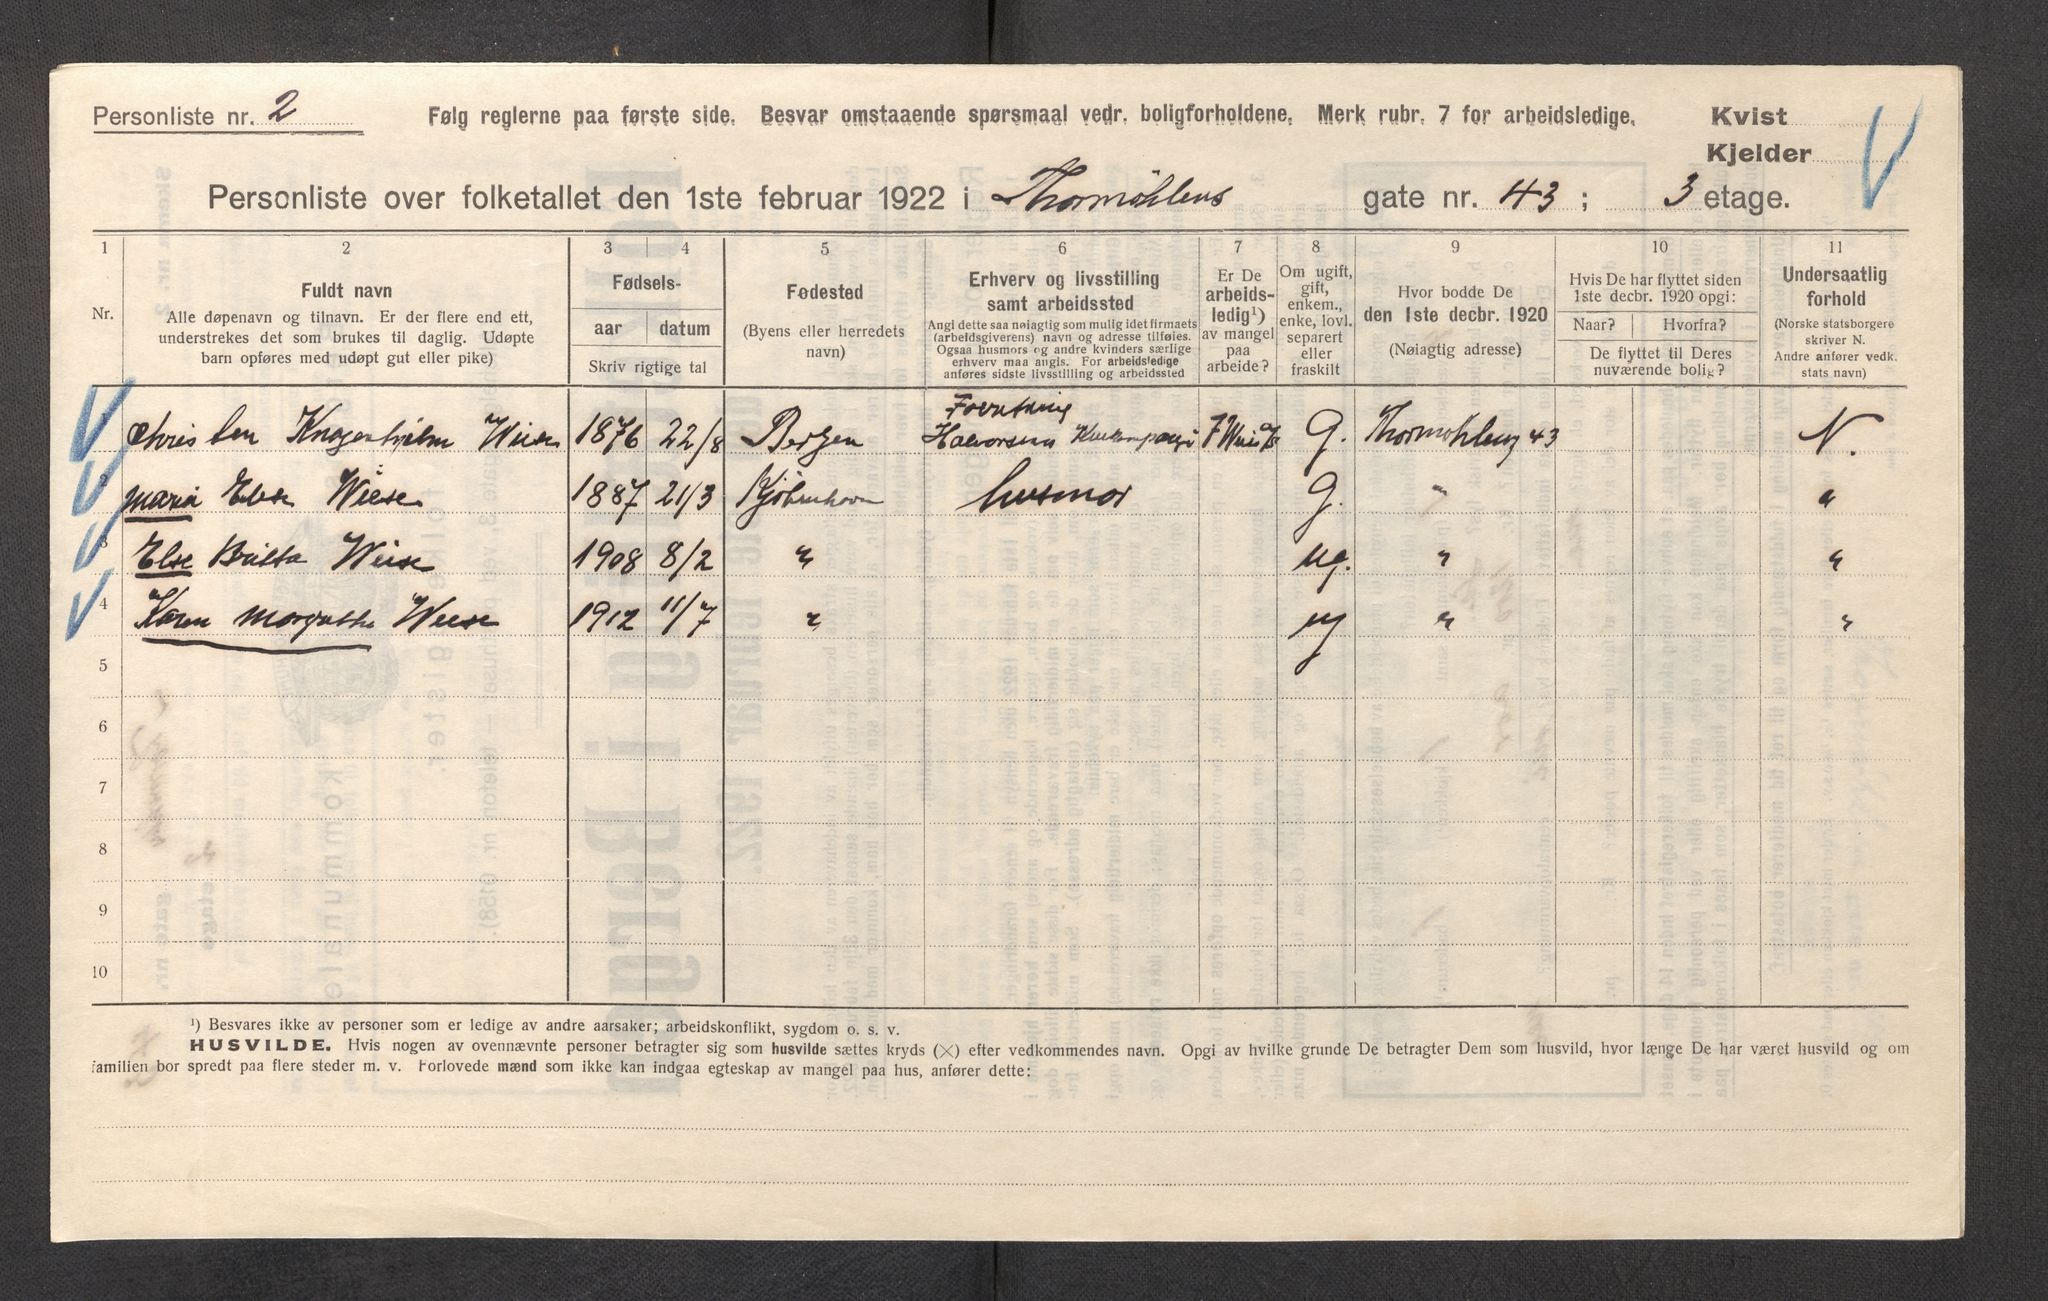 Personliste nr. 2 Følg reglerne paa første side. Besvar omstaaende spørsmaal vedr. boligforholdene. Merk rubr. 7 for arbeidsledige. Kvist
Kjelder
Personliste over folketallet den 1ste februar 1922 i Thormøhlens gate nr. 43; 3 etage.
1 2 3 4 5 6 7 8 9 10 11
Nr.
Fuldt navn
Alle døpenavn og tilnavn. Er der flere end ett,
understrekes det som brukes til daglig. Udøpte
barn opføres med udøpt gut eller pike)
Fødsels-
aar datum
Skriv rigtige tal
Fødested
(Byens eller herredets
navn)
Erhverv og livsstilling
samt arbeidssted
Angi dette saa nøiagtig som mulig idet firmaets
(arbeidsgiverens) navn og adresse tilføies.
Ogsaa husmors og andre kvinders særlige
erhverv maa angis. For arbeidsledige
anføres sidste livsstilling og arbeidssted
Er De
arbeids-
ledig¹)
av mangel
paa
arbeide?
Om ugift,
gift,
enkem.,
enke, lovl.
separert
eller
fraskilt
Hvor bodde De
den 1ste decbr. 1920
(Nøiagtig adresse)
Hvis De har flyttet siden
1ste decbr. 1920 opgi:
Naar? Hvorfra?
De flyttet til Deres
nuværende bolig?
Undersaatlig
forhold
(Norske statsborgere
skriver N.
Andre anfører vedk.
stats navn)
Christen Knagenhjelm Wiese 1876 22/8 Bergen Forretning Halvorsens G. Thormøhlens 43 N.
2 Maria Else Wiese 1887 21/3 Kjøbenhavn husmor G. " "
3 Else Britta Wiese 1908 8/2 " ug. " "
4 Karen Margrethe Wiese 1912 11/7 " ug " "
5
6
7
8
9
10
¹) Besvares ikke av personer som er ledige av andre aarsaker; arbeidskonflikt, sygdom o. s. v.
HUSVILDE. Hvis nogen av ovennævnte personer betragter sig som husvilde sættes kryds (×) efter vedkommendes navn. Opgi av hvilke grunde De betragter Dem som husvild, hvor længe De har været husvild og om
familien bor spredt paa flere steder m. v. Forlovede mænd som ikke kan indgaa egteskap av mangel paa hus, anfører dette: